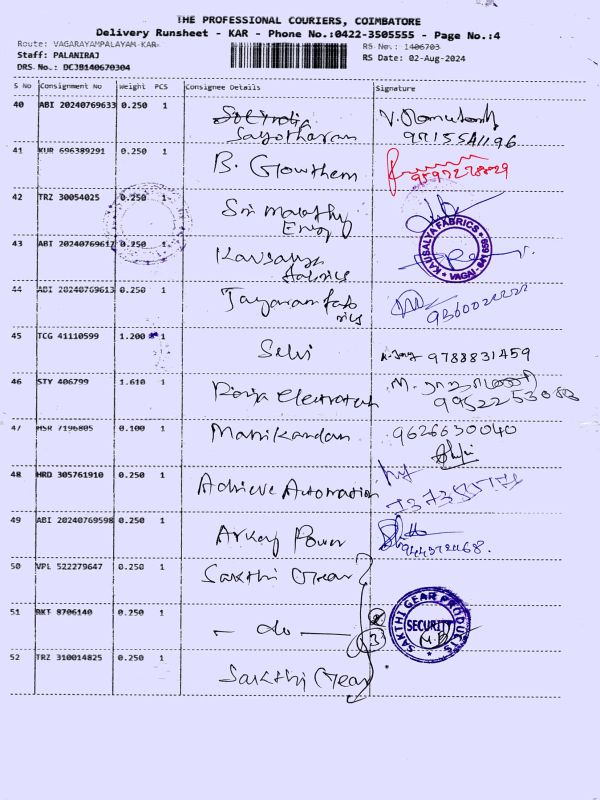 THE PROFESSIONAL COURIERS, COIMBATORE
Delivery Runsheet - KAR - Phone No.:0422-3505555 - Page No.:4
Route: VAGARAYAMPALAYAM-KAR
RS No.: 1406703
Staff: PALANIRAJ
RS Date: 02-Aug-2024
DRS No.: DCJB140670304
S No Consignment No Weight PCS Consignee Details Signature
40 ABI 20240769633 0.250 1
Sayotharan
41 KUR 696389291 0.250 1 B. Gowthem
42 TRZ 30054025 0.250 1 Sri Malathy
43 ABI 20240769617 0.250 1 Kausalya
fabrics
KAUSALYA FABRICS
VAGAI - 641 659
44 ABI 20240769613 0.250 1 Jayaram fab
rics
45 TCG 41110599 1.200 1 Selvi 9788831459
46 STY 406799 1.610 1
47 MSR 7196805 0.100 1 Manikandan 9626630040
48 HRD 305761910 0.250 1 Achieve Automation
49 ABI 20240769598 0.250 1 Arkay Power
50 VPL 522279647 0.250 1 Sakthi Gear
51 BKT 8706140 0.250 1 - do - 3
SAKTHI GEAR PRODUCTS
SECURITY
52 TRZ 310014825 0.250 1 Sakthi Gear